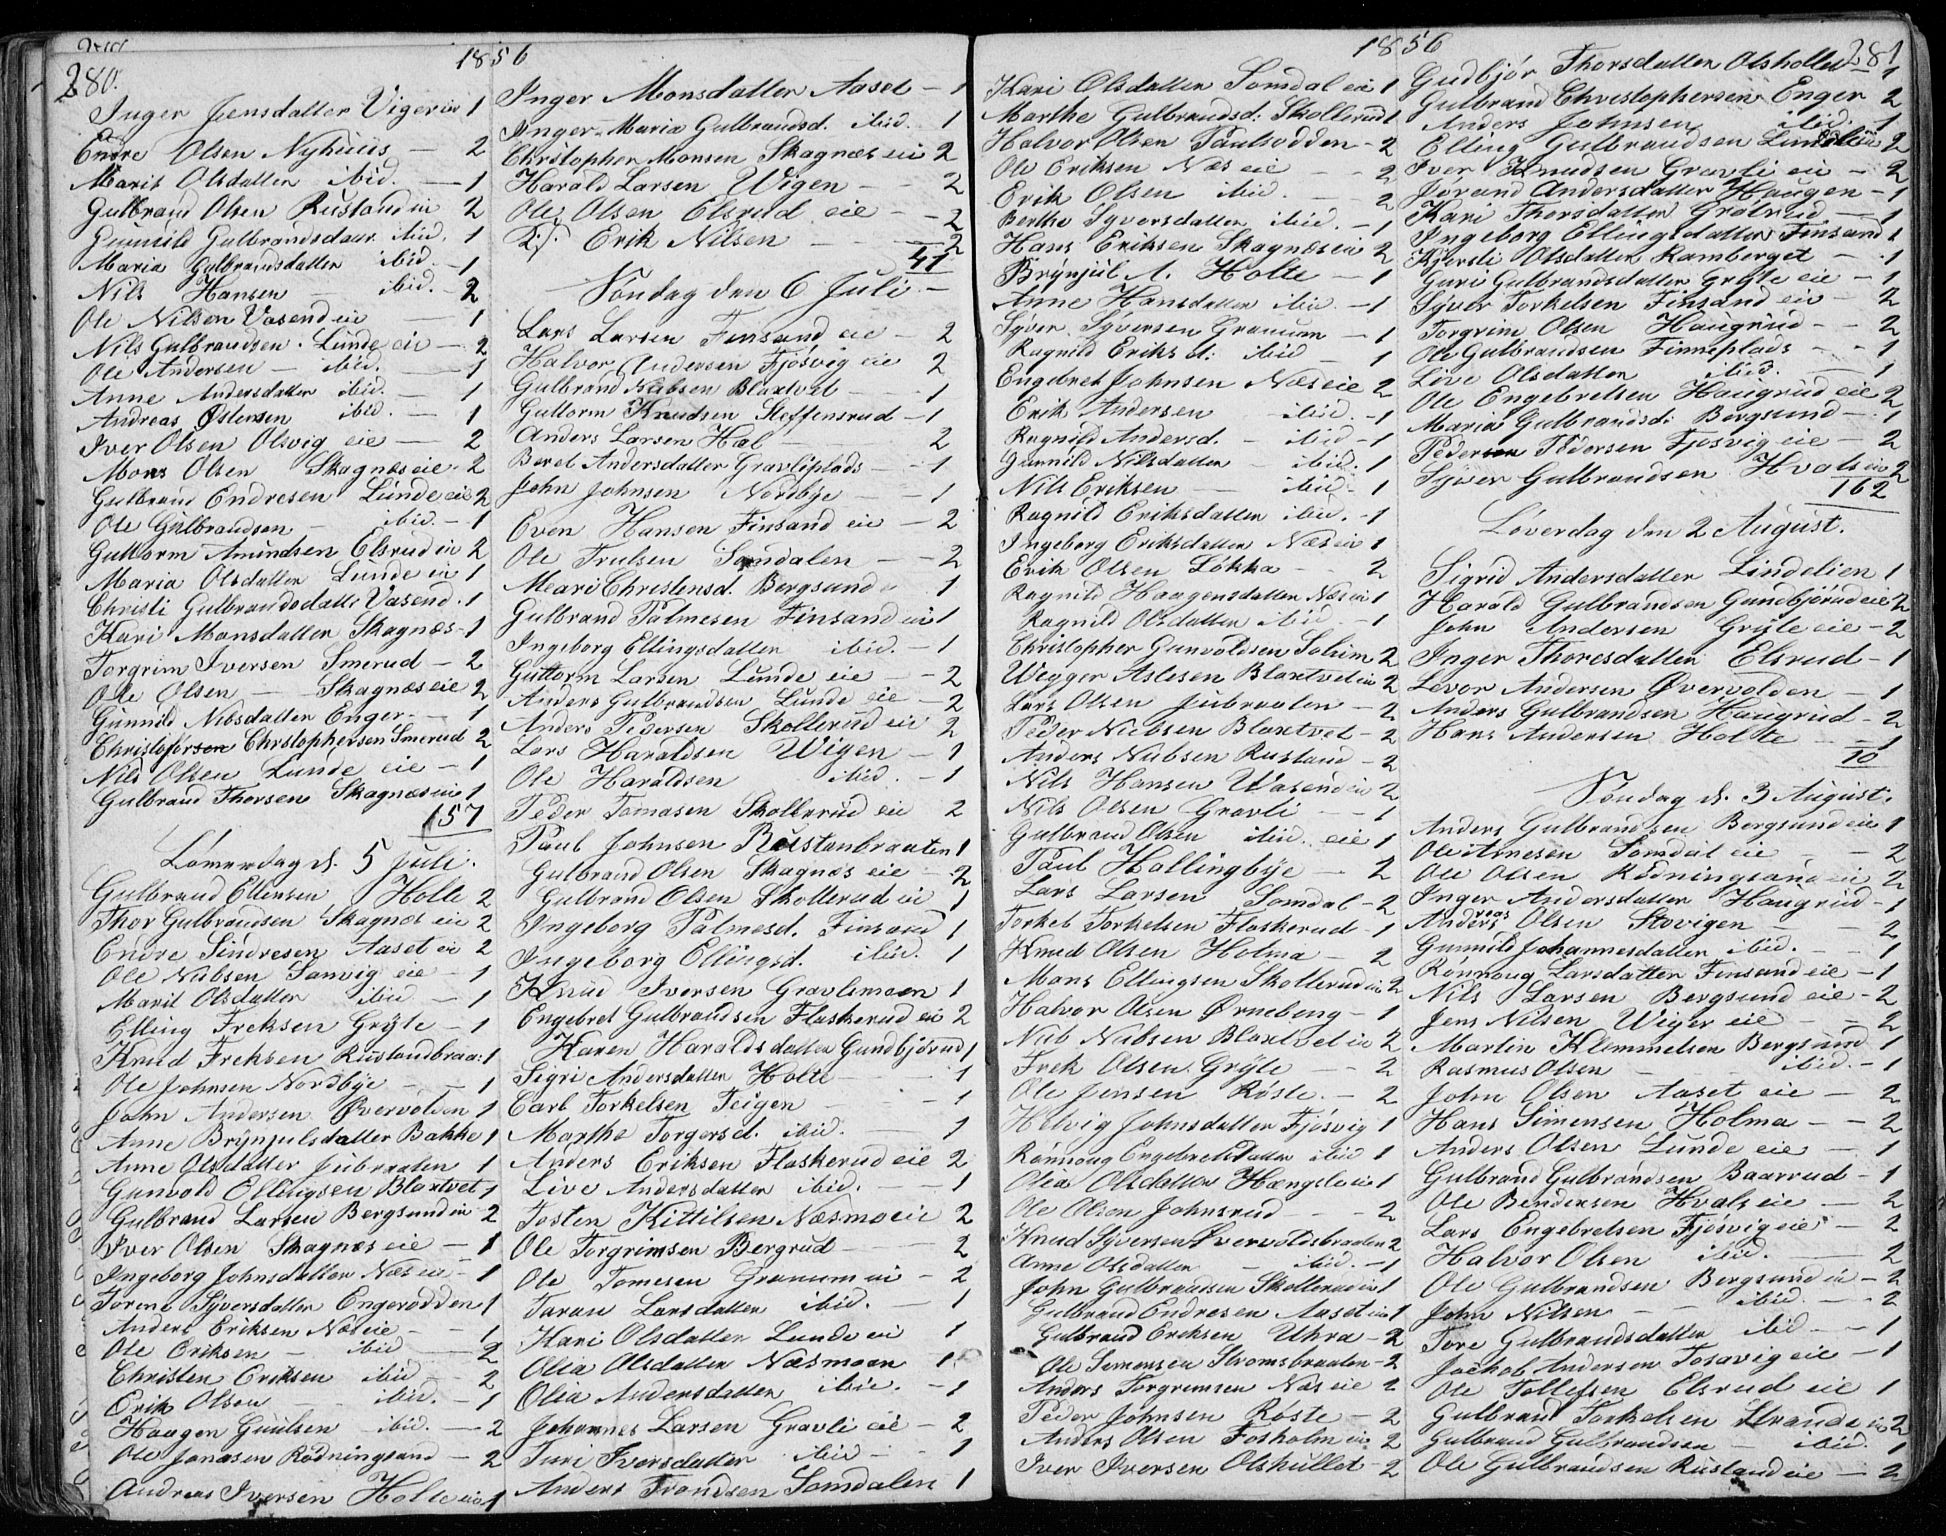 280.
1856
Inger Jensdatter Viger eie 1
Endre Olsen Nyhuus - 2
Marit Olsdatter ibid. - 1
Gulbrand Olsen Rustand eie 2
Gunnild Gulbrandsdatr. ibid. 1
Maria Gulbrandsdatter ibid. - 1
Nils Hansen - ibid. - 2
Ole Nilsen Vasend eie - 1
Nils Gulbrandsen Lunde eie - 2
Ole Andersen - ibid. - 1
Anne Andersdatter ibid. - 1
Andreas Østensen ibid. - 1
Iver Olsen Olsvig eie - 2
Mons Olsen Skagnæs eie - 2
Gulbrand Endresen Lunde eie 2
Ole Gulbrandsen - ibid. - 1
Guttorm Amundsen Elsrud eie 2
Maria Olsdatter Lunde eie 1
Christi Gulbrandsdattr Vasend. 1
Kari Monsdatter Skagnæs - 1
Torgrim Iversen Smerud - 2
Ole Olsen - Skagnæs eie 2
Gunnild Nilsdatter Enger - 1
Christofersen Christophersen Smerud 2
Nils Olsen Lunde eie - 1
Gulbrand Thorsen Skagnæs eie 1
157
Løverdag d. 5 Juli.
Gulbrand Ellensen Holte 2
Thor Gulbrandsen Skagnæs eie 2
Endre Sindresen Aaset eie 2
Ole Nilsen Sanvig eie - 1
Marit Olsdatter ibid - 1
Elling Freksen Gryte - 1
Knud Freksen Rustandbraa: 1
Ole Johnsen Nordbye - - 1
John Andersen Øvervolden 1
Anne Brynjulsdatter Bakke 1
Anne Olsdatter Jubraaten 1
Gunvold Ellingsen Blaxtvet 1
Gulbrand Larsen Bergsund eie - 2
Iver Olsen Skagnæs eie - 1
Ingeborg Johnsdatter Næs eie - 1
Torene Syversdatter Engerodden 1
Anders Eriksen Næs eie - 1
Ole Eriksen - ibid - 2
Christen Eriksen ibid - 2
Erik Olsen - ibid. - 1
Haagen Guulsen ibid. - 2
Ole Jonasen Rødningsand - 2
Andreas Iversen Holte eie 1
Inger Monsdatter Aaset - 1
Inger Maria Gulbrandsd. ibid. - 1
Christopher Monsen Skagnæs eie 2
Harald Larsen Wigen - - 2
Ole Olsen Elsrud eie - - 2
Erik Nilsen - - - 2
41
Søndag den 6 Juli -
Lars Larsen Finsand eie 2
Halvor Andersen Fjøsvig eie 2
Gulbrand Nilsen Blaxtvet - - 1
Guttorm Knudsen Steffensrud - 1
Anders Larsen Hal - 2
Beret Andersdatter Gravliplads - - 1
John Johnsen Nordbye - 1
Even Hansen Finsand eie - 2
Ole Trulsen Somdalen - - 2
Meari Christensd. Bergsund - 1
Gulbrand Palmesen Finsand eie 1
Ingeborg Ellingsdatter ibid. - 1
Guttorm Larsen Lunde eie - 2
Anders Gulbrandsen Lunde eie - 2
Anders Pedersen Skollerud eie 2
Lars Haraldsen Wigen - 1
Ole Haraldsen ibid. - 1
Peder Tomasen Skollerud eie 2
Paul Johnsen Rustanbraaten 1
Gulbrand Olsen Skagnæs eie - 2
Gulbrand Olsen Skollerud eie 1
Ingeborg Palmesd. Finsand 1
Ingeborg Ellingsd. ibid. 1
Knud Iversen Gravlimoen 1
Engebret Gulbrandsen Flaskerud eie 2
Karen Haraldsdatter Gundbjørud 1
Sigri Andersdatter Holte - 1
Carl Torkelsen Teigen - - 1
Marthe Torgersd. ibid. 1
Anders Eriksen Flaskerud eie 2
Live Andersdatter ibid. - 1
Tosten Kittilsen Næsmo eie 2
Ole Torgrimsen Bergrud - 2
Ole Tomesen Granum eie - 2
Taran Larsdatter ibid. - 1
Kari Olsdatter Lunde eie 1
Olea Olsdatter Næsmoen 1
Olia Andersdatter ibid. - 1
Johannes Larsen Gravli eie - 2
Turi Iversdatter ibid - 1
Anders Trondsen Somdalen 1
1856
281
Kari Olsdatter Somdal eie 1
Marthe Gulbrandsd: Skollerud 1
Halvor Olsen Paulsodden - 2
Ole Eriksen Næs eie - 2
Erik Olsen ibid. - 2
Berthe Syversdatter ibid. - 1
Hans Eriksen Skagnæs eie 2
Brynjul A. Holte - 1
Anne Hansdatter ibid - 1
Syver Syversen Granum - 1
Ragnild Eriksd: ibid - 1
Engebret Johnsen Næs eie 2
Erik Andersen ibid. - 1
Ragnild Andersd. - ibid - 1
Gunnild Nilsdatter - ibid. 1
Nils Eriksen - ibid - 1
Ragnild Eriksdatter ibid. - 1
Ingeborg Eriksdatter Næs eie 1
Erik Olsen Løkka - 2
Ragnild Haagensdatter Næs eie 1
Ragnild Olsdatter ibid - 1
Christopher Gunvoldsen Solum 2
Wegger Aslesen Blaxtvet eie 2
Lars Olsen Jubraaten - 2
Peder Nielsen Blaxtvet - 2
Anders Nielsen Rustand - 2
Nils Hansen Wasend eie 2
Nils Olsen Gravli - 1
Gulbrand Olsen ibid. eie 1
Paul Hallingbye - 2
Lars Larsen Somdal - 2
Torkel Torkelsen Flaskerud - 1
Knud Olsen Holma - 2
Mons Ellingsen Skollerud eie 2
Halvor Olsen Ørneberg - 1
Nils Nilsen Blaxtvet eie 2
Frek Olsen Gryte - - 2
Ole Jensen Røste. - 2
Helvig Johnsdatter Fjøsvig 1
Rønnoug Engebretsdatter ibid 1
Olea Olsdatter Hængsle eie 1
Ole Olson Johnsrud - 2
Knud Syversen Øvervoldsbraaten 2
Anne Olsdatter - ibid. - 1
John Gulbrandsen Skollerud eie 1
Gulbrand Endresen Aaset eie 1
Gulbrand Ereksen Uhra - 2
Ole Semensen Stromsbraaten - 2
Anders Torgrimsen Næs eie 2
Peder Johnsen Røste - 2
Anders Olsen Fosholm eie 2
Iver Iversen Olshullet - 2
Gudbjør Thorsdatter Olshollet 1
Gulbrand Christophersen Enger 2
Anders Johnsen ibid. 1
Elling Gulbrandsen Lundelien 2
Iver Knudsen Gravli eie - 2
Jorand Andersdatter Haugen - 1
Kari Thorsdatter Grøtrud - 1
Ingeborg Ellingsdatter Finsand 1
Kjersti Olsdatter Ramberget - 1
Guri Gulbrandsdatter Gryte eie - 1
Syver Torkelsen Finsand eie - 2
Torgrim Olsen Haugrud - - 2
Ole Gulbrandsen Finneplads - - 1
Live Olsdatter ibid. - 1
Ole Engebretsen Haugrud eie 2
Maria Gulbrandsd: Bergsund - 1
Pedersen Pedersen Fjøsvig eie - 2
Syver Gulbrandsen Hvals eie 2
162
Løverdag den 2 August.
Sigrid Andersdatter Lindelien 1
Harald Gulbrandsen Gundbjørud eie 2
John Andersen Gryte eie - 2
Inger Thoresdatter Elsrud - 1
Levor Andersen Øvervolden - 1
Anders Gulbrandsen Haugrud - 2
Hans Andersen Holte - 1
10
Søndag d. 3 August.
Anders Gulbrandsen Bergsund eie 1
Ole Arnesen Somdal eie - 2
Ole Olsen Rødningsand eie 2
Inger Andersdatter Haugrud - 1
Andreas Olsen Stovigen - - 2
Gunnild Johannesdatter ibid. - 1
Rønnoug Larsdatter Finsand eie - 1
Nils Larsen Bergsund eie - 2
Jens Nilsen Wiger eie - - 2
Martin Klemmetsen Bergsund 1
Rasmus Olsen - ibid. - 1
John Olsen Aaset eie - 2
Hans Simensen Holma - - 2
Anders Olsen Lunde eie - 1
Gulbrand Gulbrandsen Baarrud - 1
Ole Bendiksen Hvals eie - 2
Lars Engebretsen Fjøsvig eie - 2
Halvor Olsen ibid. - 2
Ole Gulbrandsen Bergsund eie - 2
John Nilsen - - ibid. - - 2
Tore Gulbrandsdatter ibid - - 1
Jackob Andersen Tosavig eie - 1
Ole Tollefsen Elsrud eie 1
Gulbrand Torkelsen Strande eie 2
Gulbrand Gulbrandsen - ibid. 1
Ole Gulbrandsen Rustand eie - 2